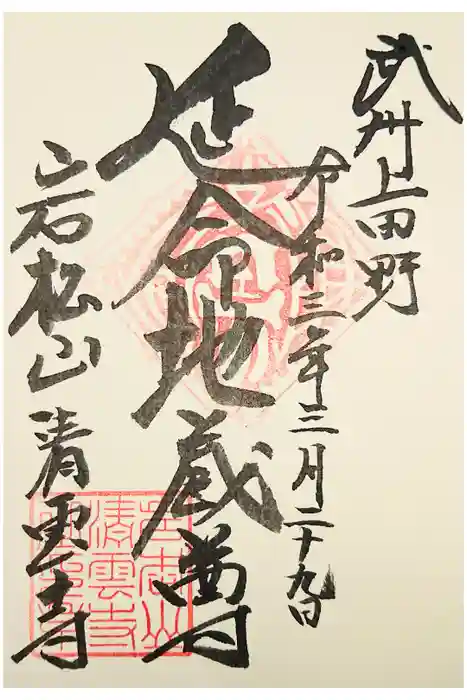 武州上田野
令和三年三月二十九日
延命地蔵尊
岩松山清雲寺
岩松山
清雲寺